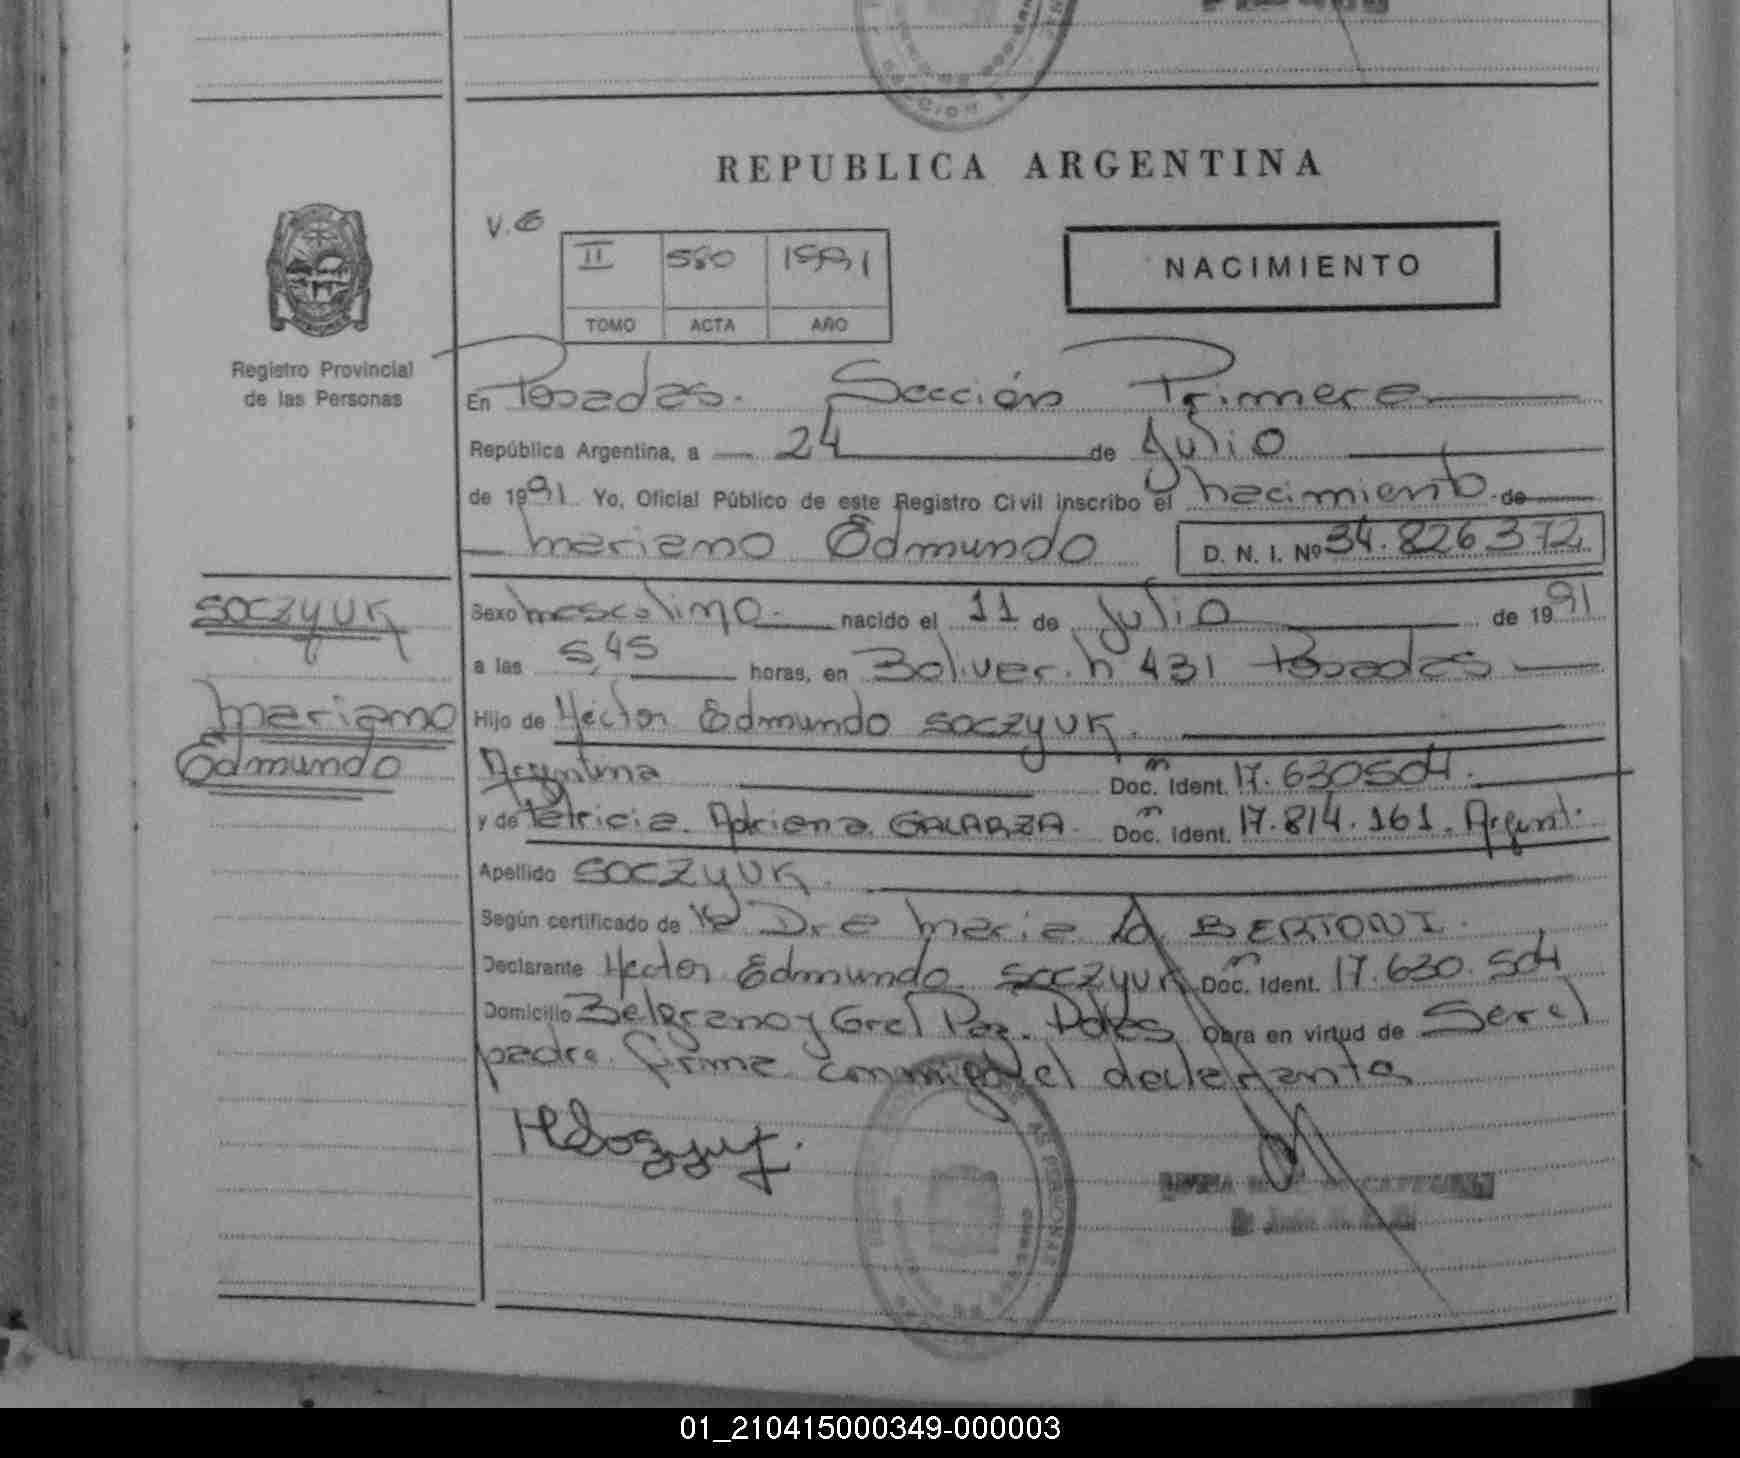 REPUBLICA ARGENTINA
V.6
II 580 1991
TOMO ACTA AÑO
NACIMIENTO
Registro Provincial
de las Personas
En Posadas. Sección Primera
República Argentina, a 24 de Julio
de 1991 Yo, Oficial Público de este Registro Civil inscribo el nacimiento de
Mariano Edmundo D. N. I. Nº 34.826.372
SOCZYUK
Mariano
Edmundo
Sexo masculino nacido el 11 de Julio de 1991
a las 5,45 horas, en Bolivar. n 431 Posadas
Hijo de Héctor Edmundo SOCZYUK.
Argentina Doc. Ident. 17.630504.
y de Patricia Adriana GALARZA. Doc. Ident. 17.814.161. Argent.
Apellido SOCZYUK.
Según certificado de la Dra Maria A BERTONI.
Declarante Hector Edmundo SOCZYUK Doc. Ident. 17.630.504
Domicilio Belgrano y Gral Paz. Pdas Obra en virtud de Ser el
padre. firma conmigo el declarante
01_210415000349-000003